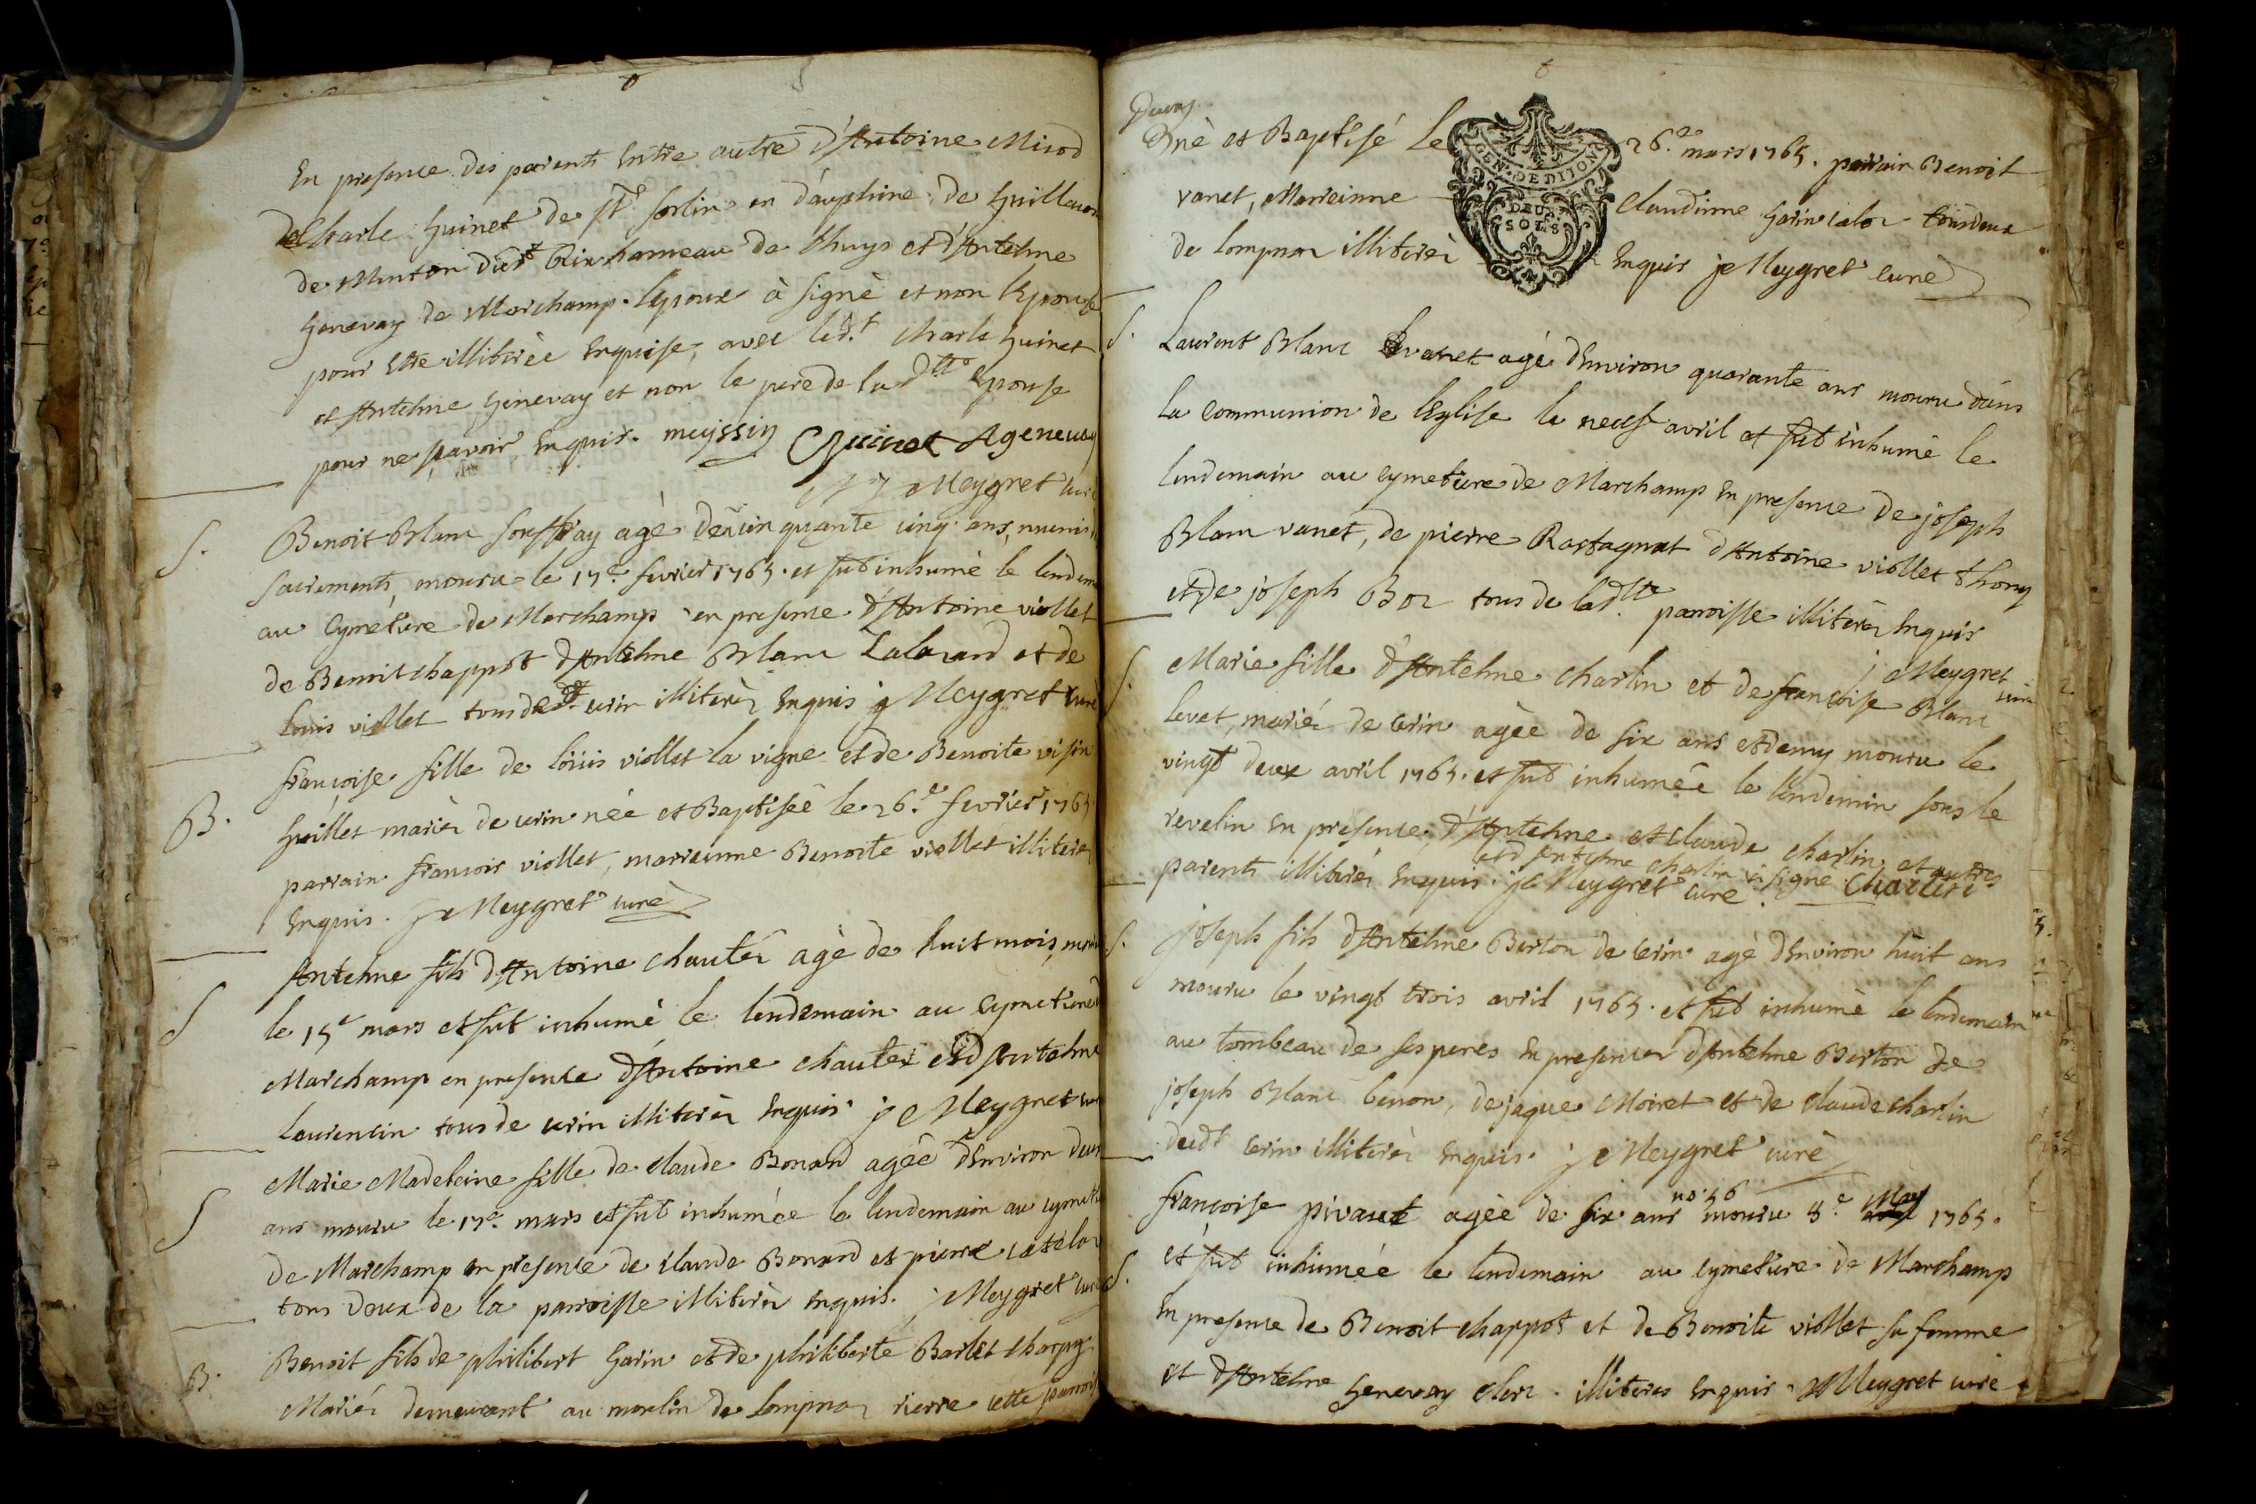 En presence des parents Entre autre d'Antoine Misod
de Charle Guinet de St Sorlin en dauphiné de Guillaume
de Minton Hameau de Thuys et d'Antelme
Genevay de Marchamp. l'Epoux à signé et non l'Epouse
pour être illitirée Enquise, avec led.t Charle Guinet
et Antelme Genevay et non le pere de la d.tte Epouse
pour ne sçavoir Enquis. meyssin CGuinet Ageneuay
Meygret curé
S.
Benoit Blanc agé de cinquante cinq ans, munis
sacrements, mouru le 17.e fevrier 1765. et fut inhumé le lendem
au Cymetiere de Marchamp en presence d'Antoine viollet
de Benoit chappot d'Antelme Blanc Lalouand et de
Louis viollet tous dud.t cerin illiterés Enquis j Meygret curé
B.
francoise fille de loüis viollet la vigne et de Benoite visin
Guillet mariés de cerin née et Baptisée le 26.e fevrier 1765
parrain francois viollet, marreinne Benoite viollet illiteres
Enquis. j Meygret curé
S
Antelme fils d'Antoine chautés agé de huit mois, mouru
le 15e mars et fut inhumé le lendemain au Cymetiere d
Marchamp en presence d'Antoine chautés et d'Antelme
Laurencin tous de cerin illiterés Enquis j Meygret curé
S
Marie Madeleine fille de claude Bonard agée d'Environ deux
ans mouru le 17.e mars et fut inhumée le lendemain au cymetie
de Marchamp en presence de claude Bonard et pierre catelou
tous deux de la parroisse illiterés Enquis. j Meygret curé
B.
Benoit fils de philibert Garin et de philiberte Barlet charpy
Mariés demeurant au moulin de Lompnas rierre cette parrois
né et Baptisé Le 26.e mars 1765. parrain Benoit
GEN. DE DIJON
DEUX
SOLS
vanet, Marreinne Claudinne Garin calor tous deux
de lompnas illiterés Enquis je Meygret curé
S.
Laurent Blanc vanet agé d'Environ quarante ans mouru dans
la Communion de l'Eglise le neuf avril et fut inhumé le
lendemain au cymetiere de Marchamp En presence de joseph
Blanc vanet, de pierre Rostagnat d'Antoine viollet thony
et de joseph Boz tous de lad.tte parroisse illiterés Enquis
j Meygret curé
S.
Marie fille d'Antelme charlin et de francoise Blanc
levet, mariés de cerin agée de six ans et demy mouru le
vingt deux avril 1765. et fut inhumée le lendemin sous le
revelin En presence d'Antelme et claude charlin et autres
parents illiterés Enquis. et d'Antelme charlin signé Charlin
je Meygret curé.
S.
joseph fils d'Antelme Berton de cerin agé d'Environ huit ans
mouru le vingt trois avril 1765. et fut inhumé le lendemain
au tombeau de ses peres En presence d'Antelme Berton de
joseph Blanc benon, de jaque Moiret et de claude charlin
dudt cerin illiterés Enquis. j Meygret curé
S.
francoise pivaut agée de six ans mouru 8.e May 1765.
et fut inhumée le lendemain au cymetiere de Marchamp
En presence de Benoit chappot et de Benoite viollet sa femme
et d'Antelme Genevay clerc. illiteres Enquis j Meygret curé